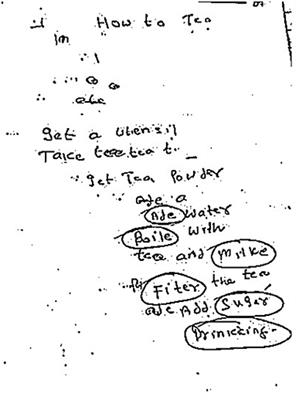 How to Tea
Im
abc
Get a utensil
Take teetea t.
Get Tea Powder
ade a
Ade water
Boile with
tea and Milke
Filter the tea
ade Add Suger
Drinkting.